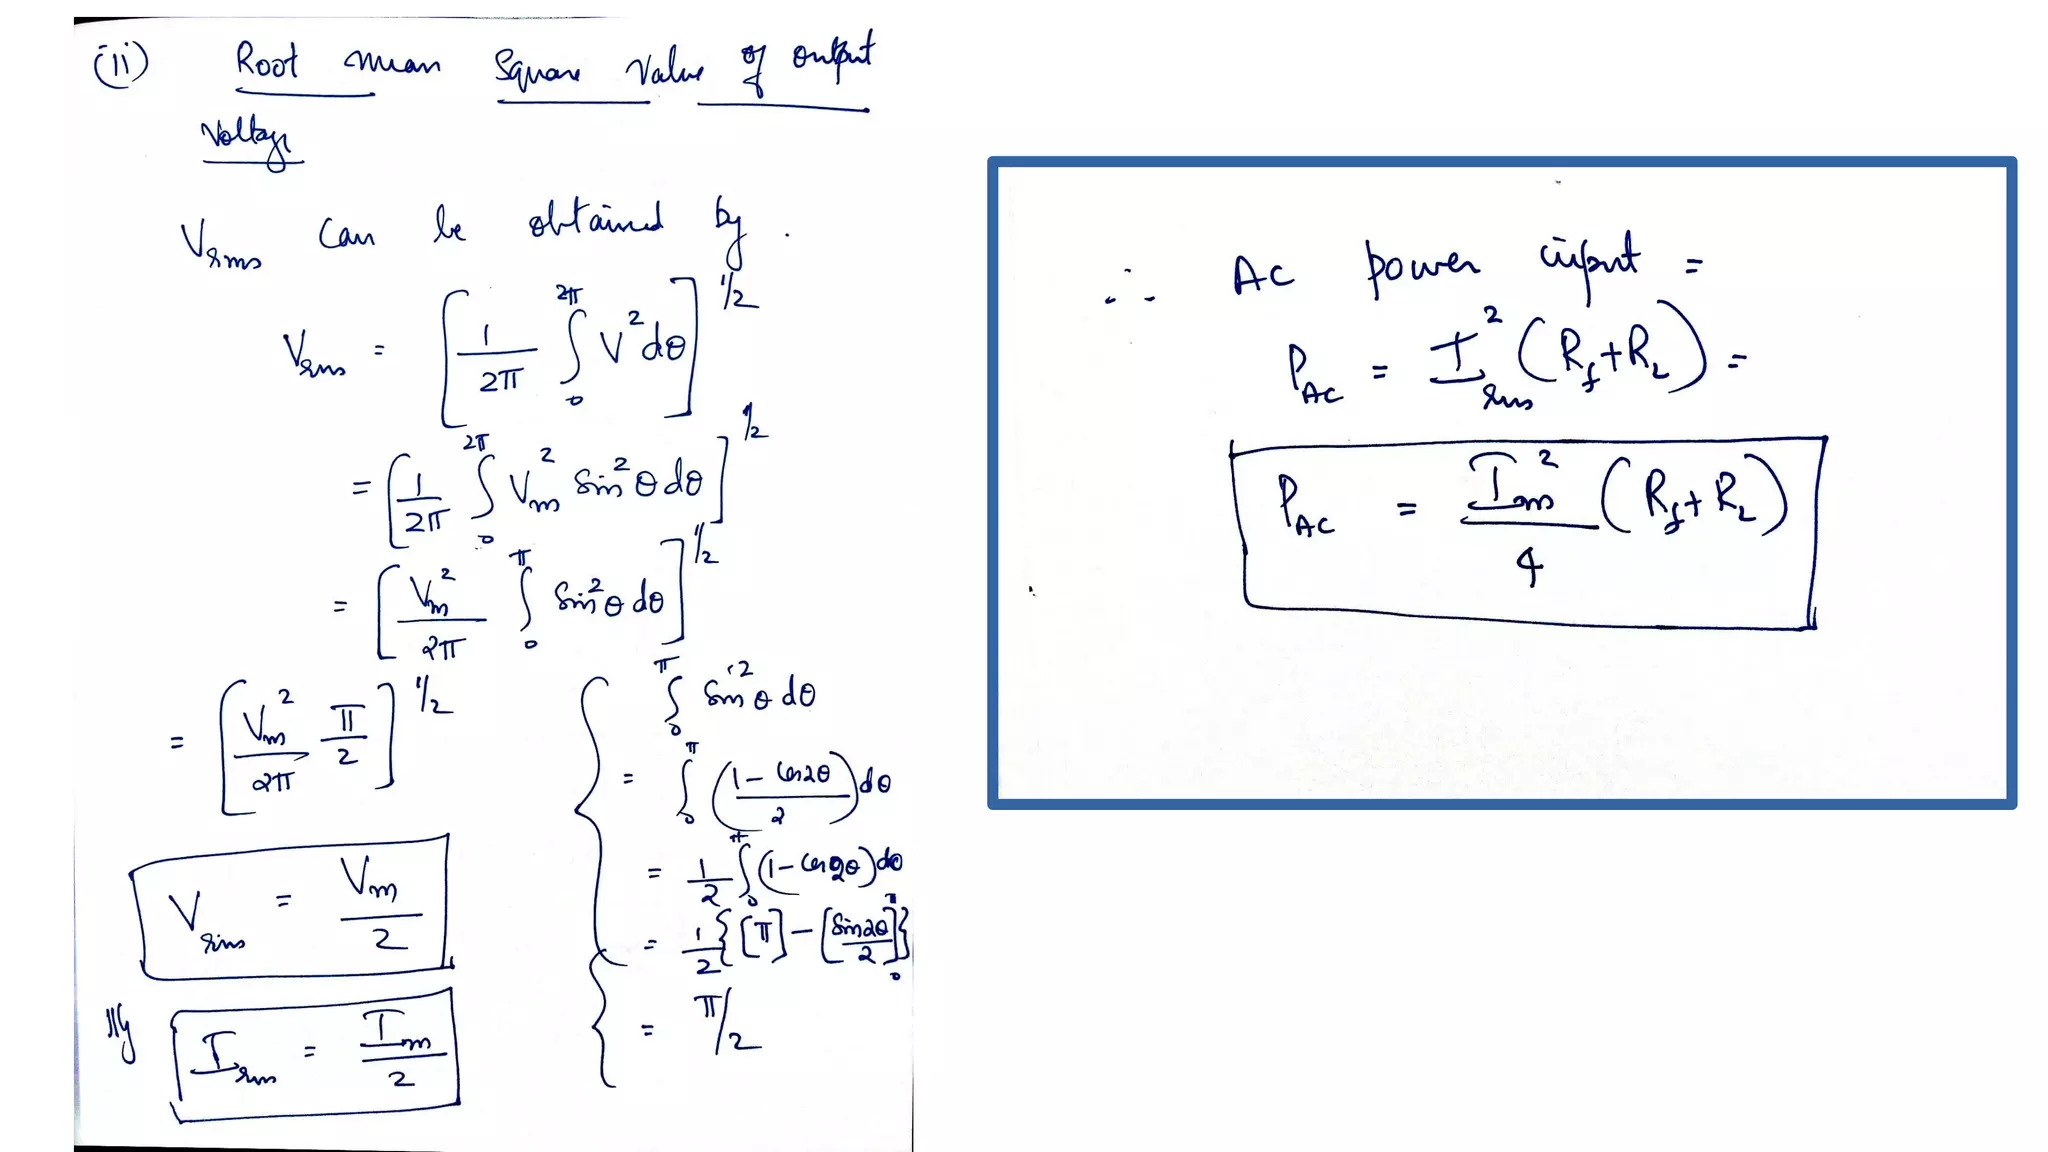 (ii) Root mean Square Value of output
Voltage
Vrms can be obtained by.
Vrms = [1/2π ∫₀^2π V² dθ]^1/2
= [1/2π ∫₀^2π Vm² Sin²θ dθ]^1/2
= [Vm²/2π ∫₀^π Sin²θ dθ]^1/2
= [Vm²/2π π/2]^1/2
Vrms = Vm/2
|||ly Irms = Im/2
∫₀^π Sin²θ dθ
= ∫₀^π (1 - Cos2θ/2) dθ
= 1/2 ∫₀^π (1 - Cos2θ) dθ
= 1/2 {[π] - [Sin2θ/2]₀^π}
= π/2
∴ AC power input =
PAC = I²rms (Rf + RL) =
PAC = Im²/4 (Rf + RL)